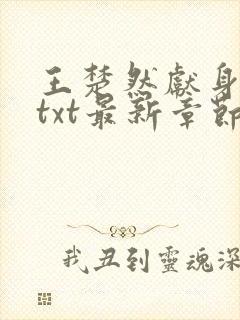 王楚然獻身
txt最新章節
我丑到靈魂深